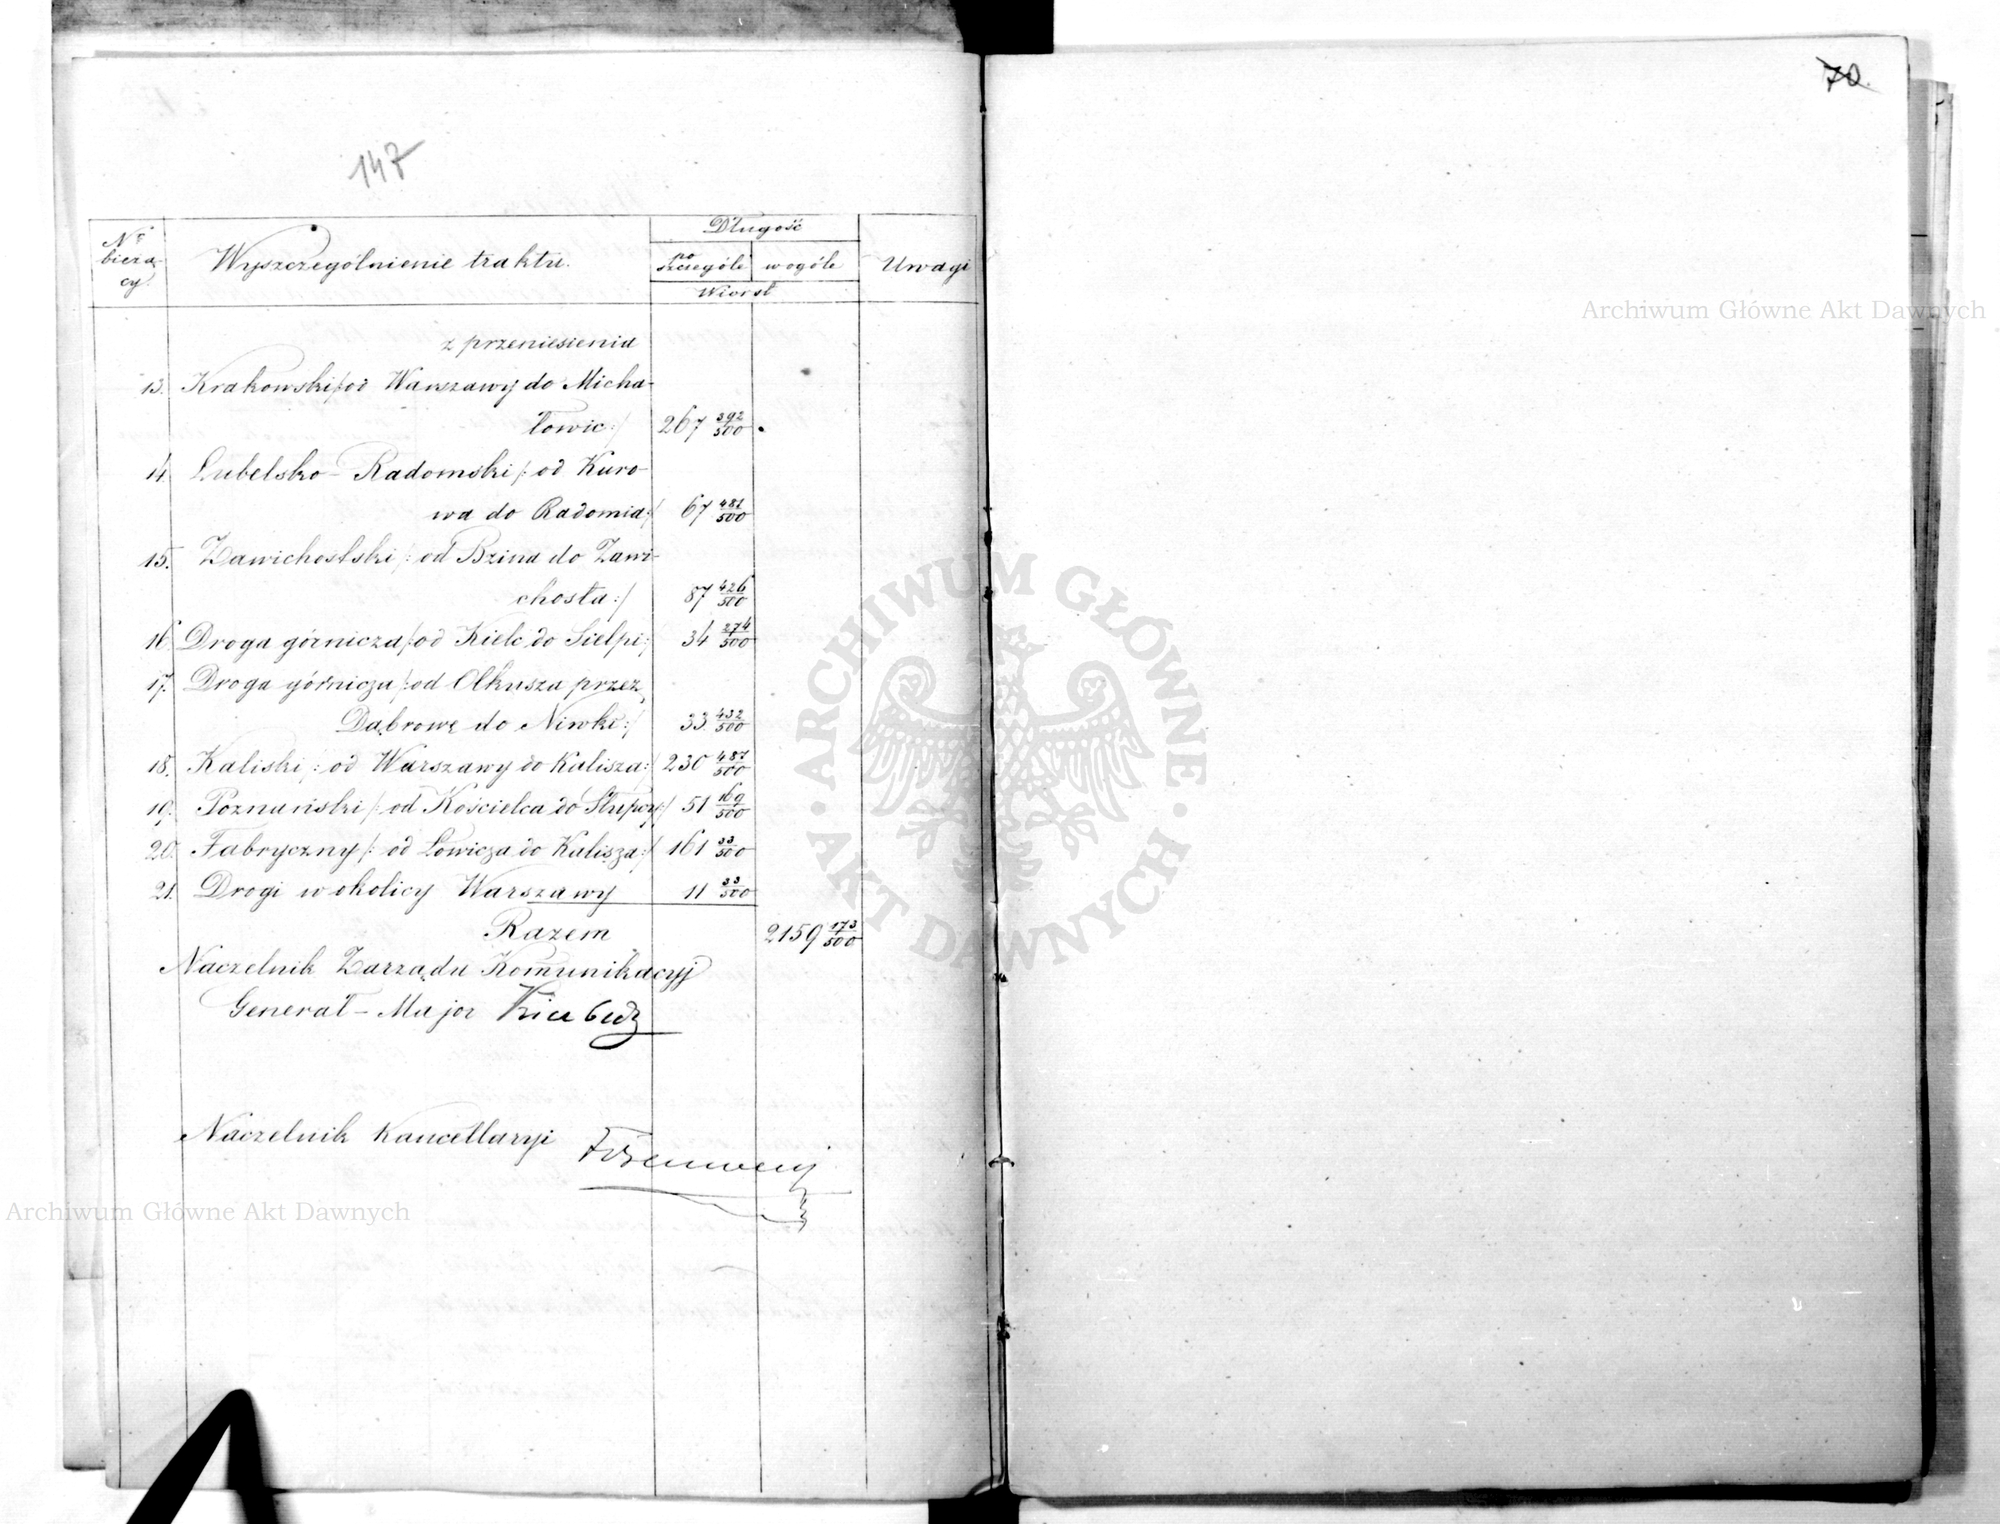 70.
147
Nr bieżą- cy.
Wyszczególnienie traktu.
Długość
po szczególe
wogóle
Wiorst
Uwagi
z przeniesienia
13. Krakowski /: od Warszawy do Micha-
łowic :/ 267 392/500
14. Lubelsko-Radomski /: od Kuro-
wa do Radomia :/ 67 481/500
15. Zawichostski /: od Bzina do Zawi-
chosta :/ 87 426/500
16. Droga górnicza /: od Kielc do Sielpi :/ 34 274/500
17. Droga górnicza /: od Olkusza przez
Dąbrowę do Niwki :/ 33 432/500
18. Kaliski /: od Warszawy do Kalisza :/ 230 487/500
19. Poznański /: od Kościelca do Słupcy :/ 51 169/500
20. Fabryczny /: od Łowicza do Kalisza :/ 161 33/500
21. Drogi w okolicy Warszawy 11 33/500
Razem 2159 173/500
Naczelnik Zarządu Komunikacyj
Generał-Major Kierbedź
Naczelnik Kancellaryi
Archiwum Główne Akt Dawnych
Archiwum Główne Akt Dawnych
· ARCHIWUM GŁÓWNE · AKT DAWNYCH